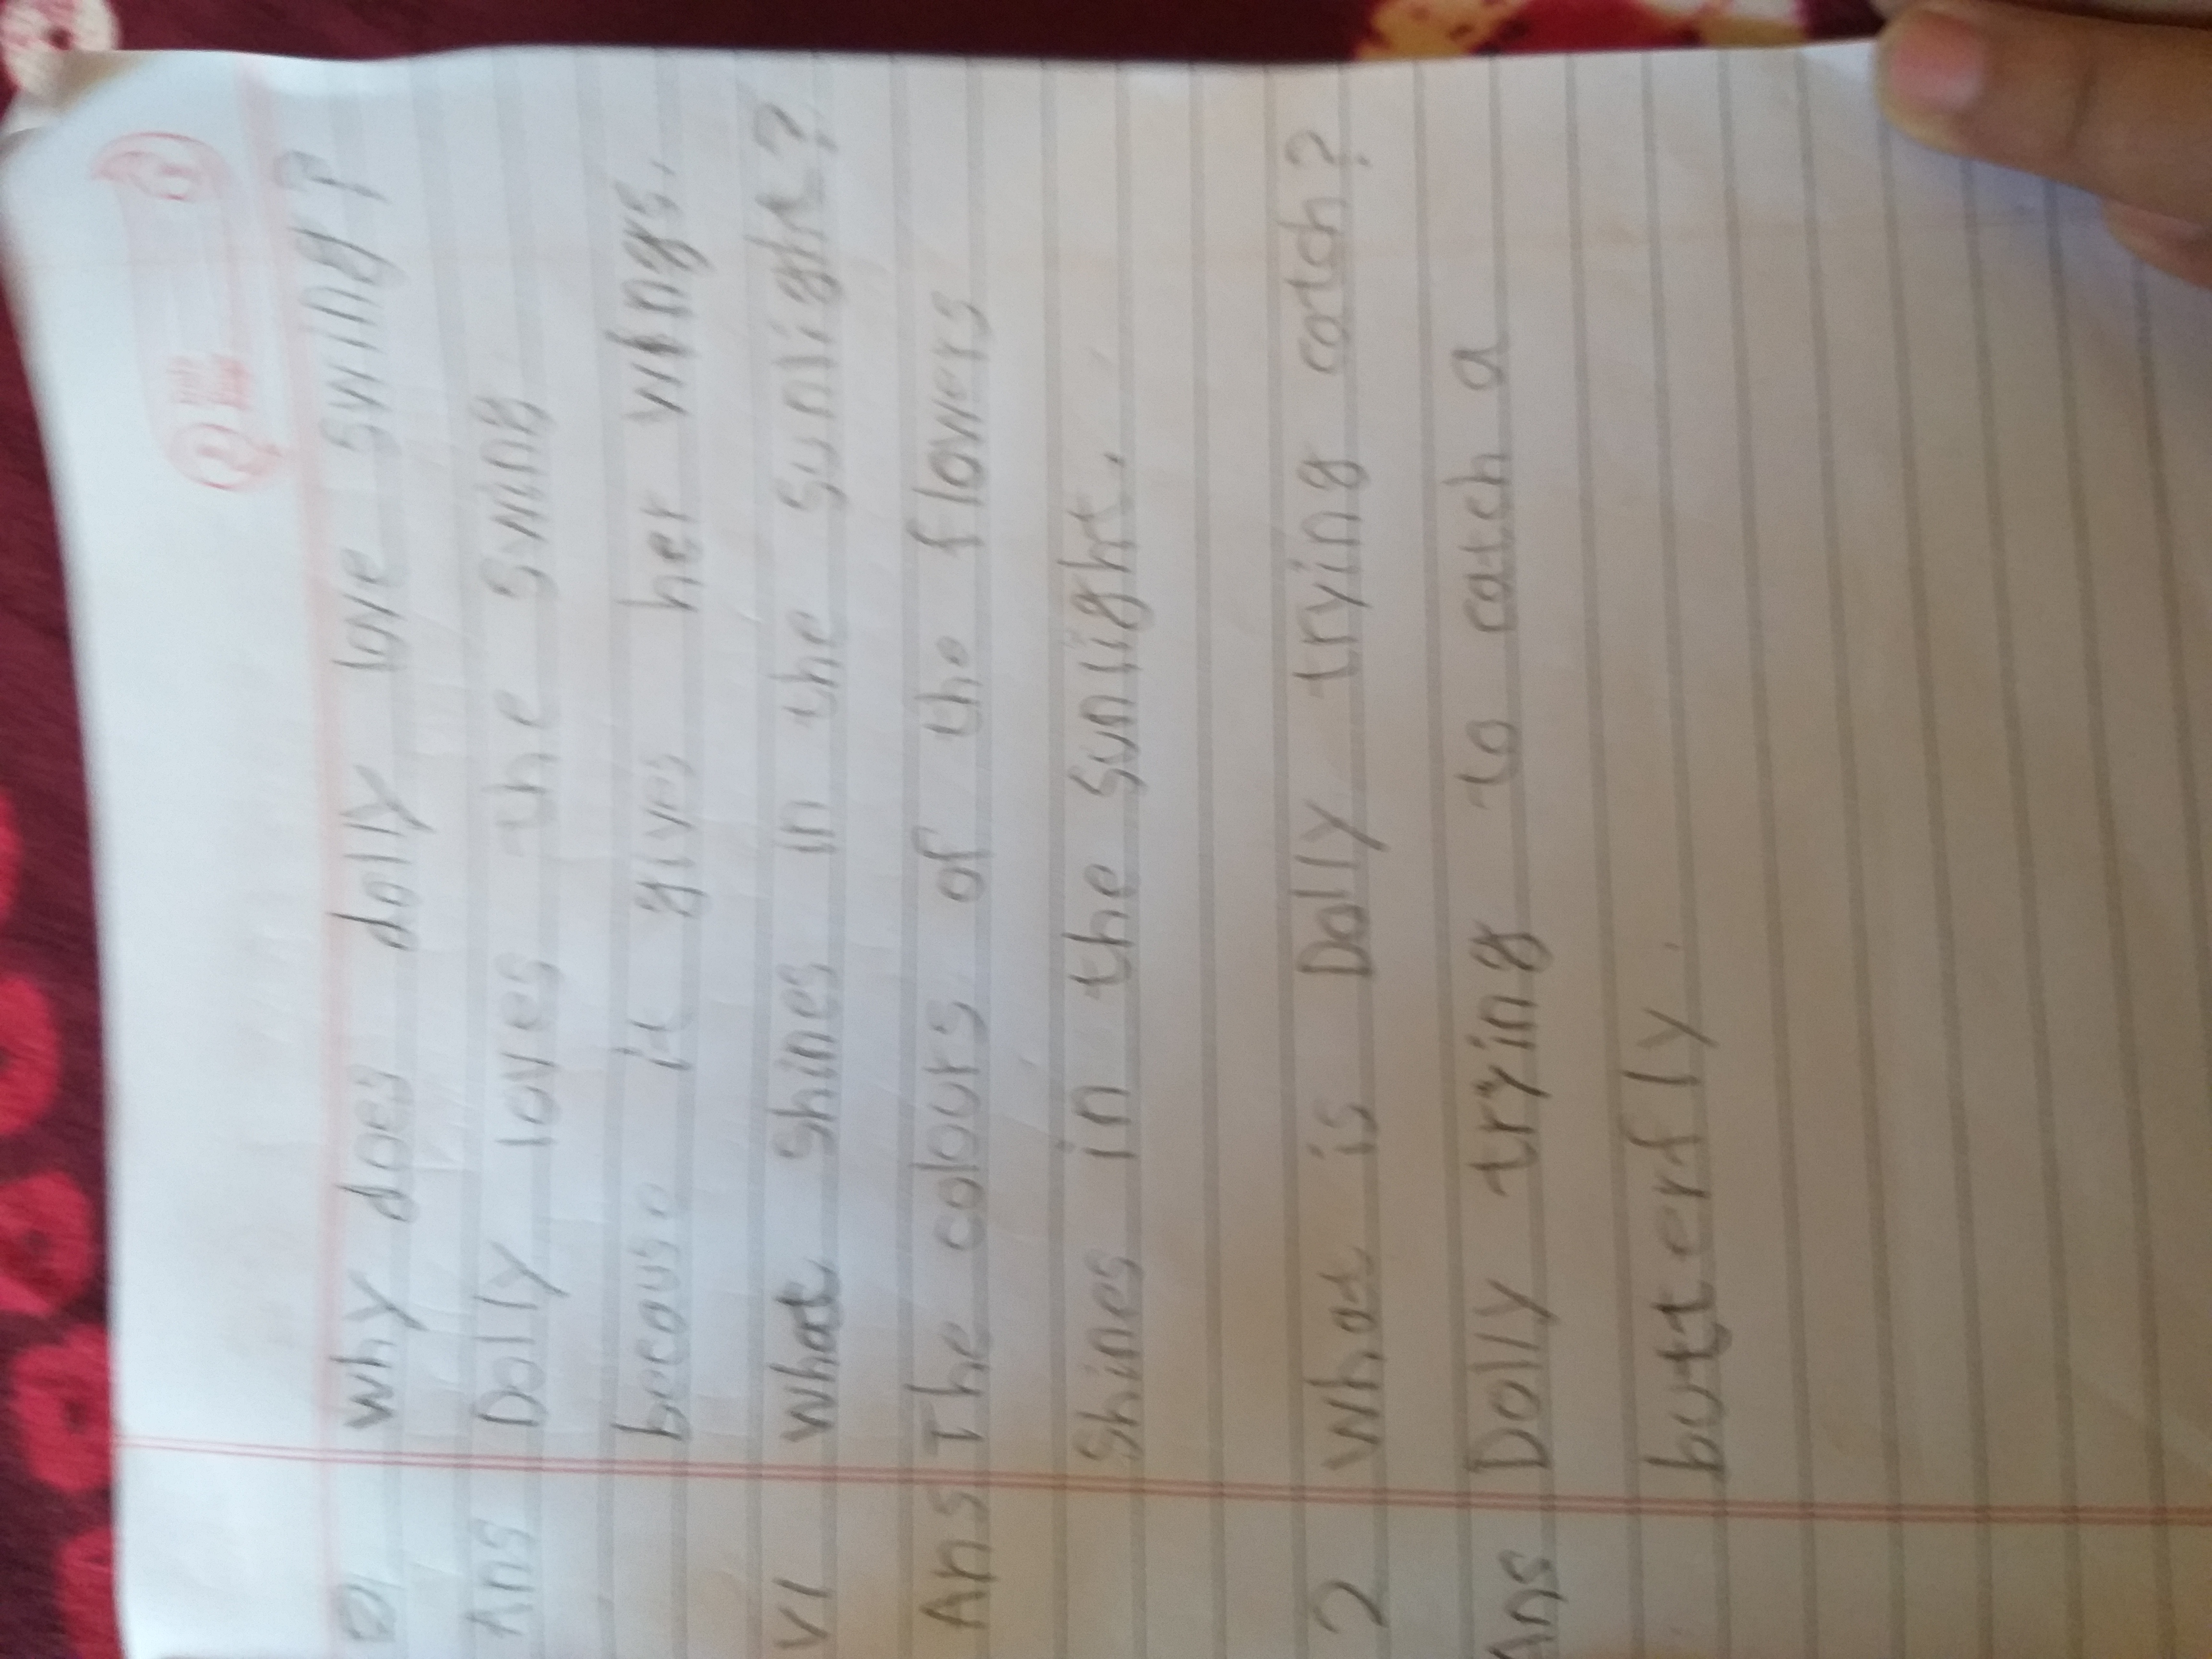 why does dolly love swing?
Ans Dolly loves the swing
because it gives her wings.
what shines in the sunlight?
Ans The colours of the flowers
shines in the sunlight.
2 what is Dolly trying catch?
Ans Dolly trying to catch a
butterfly.